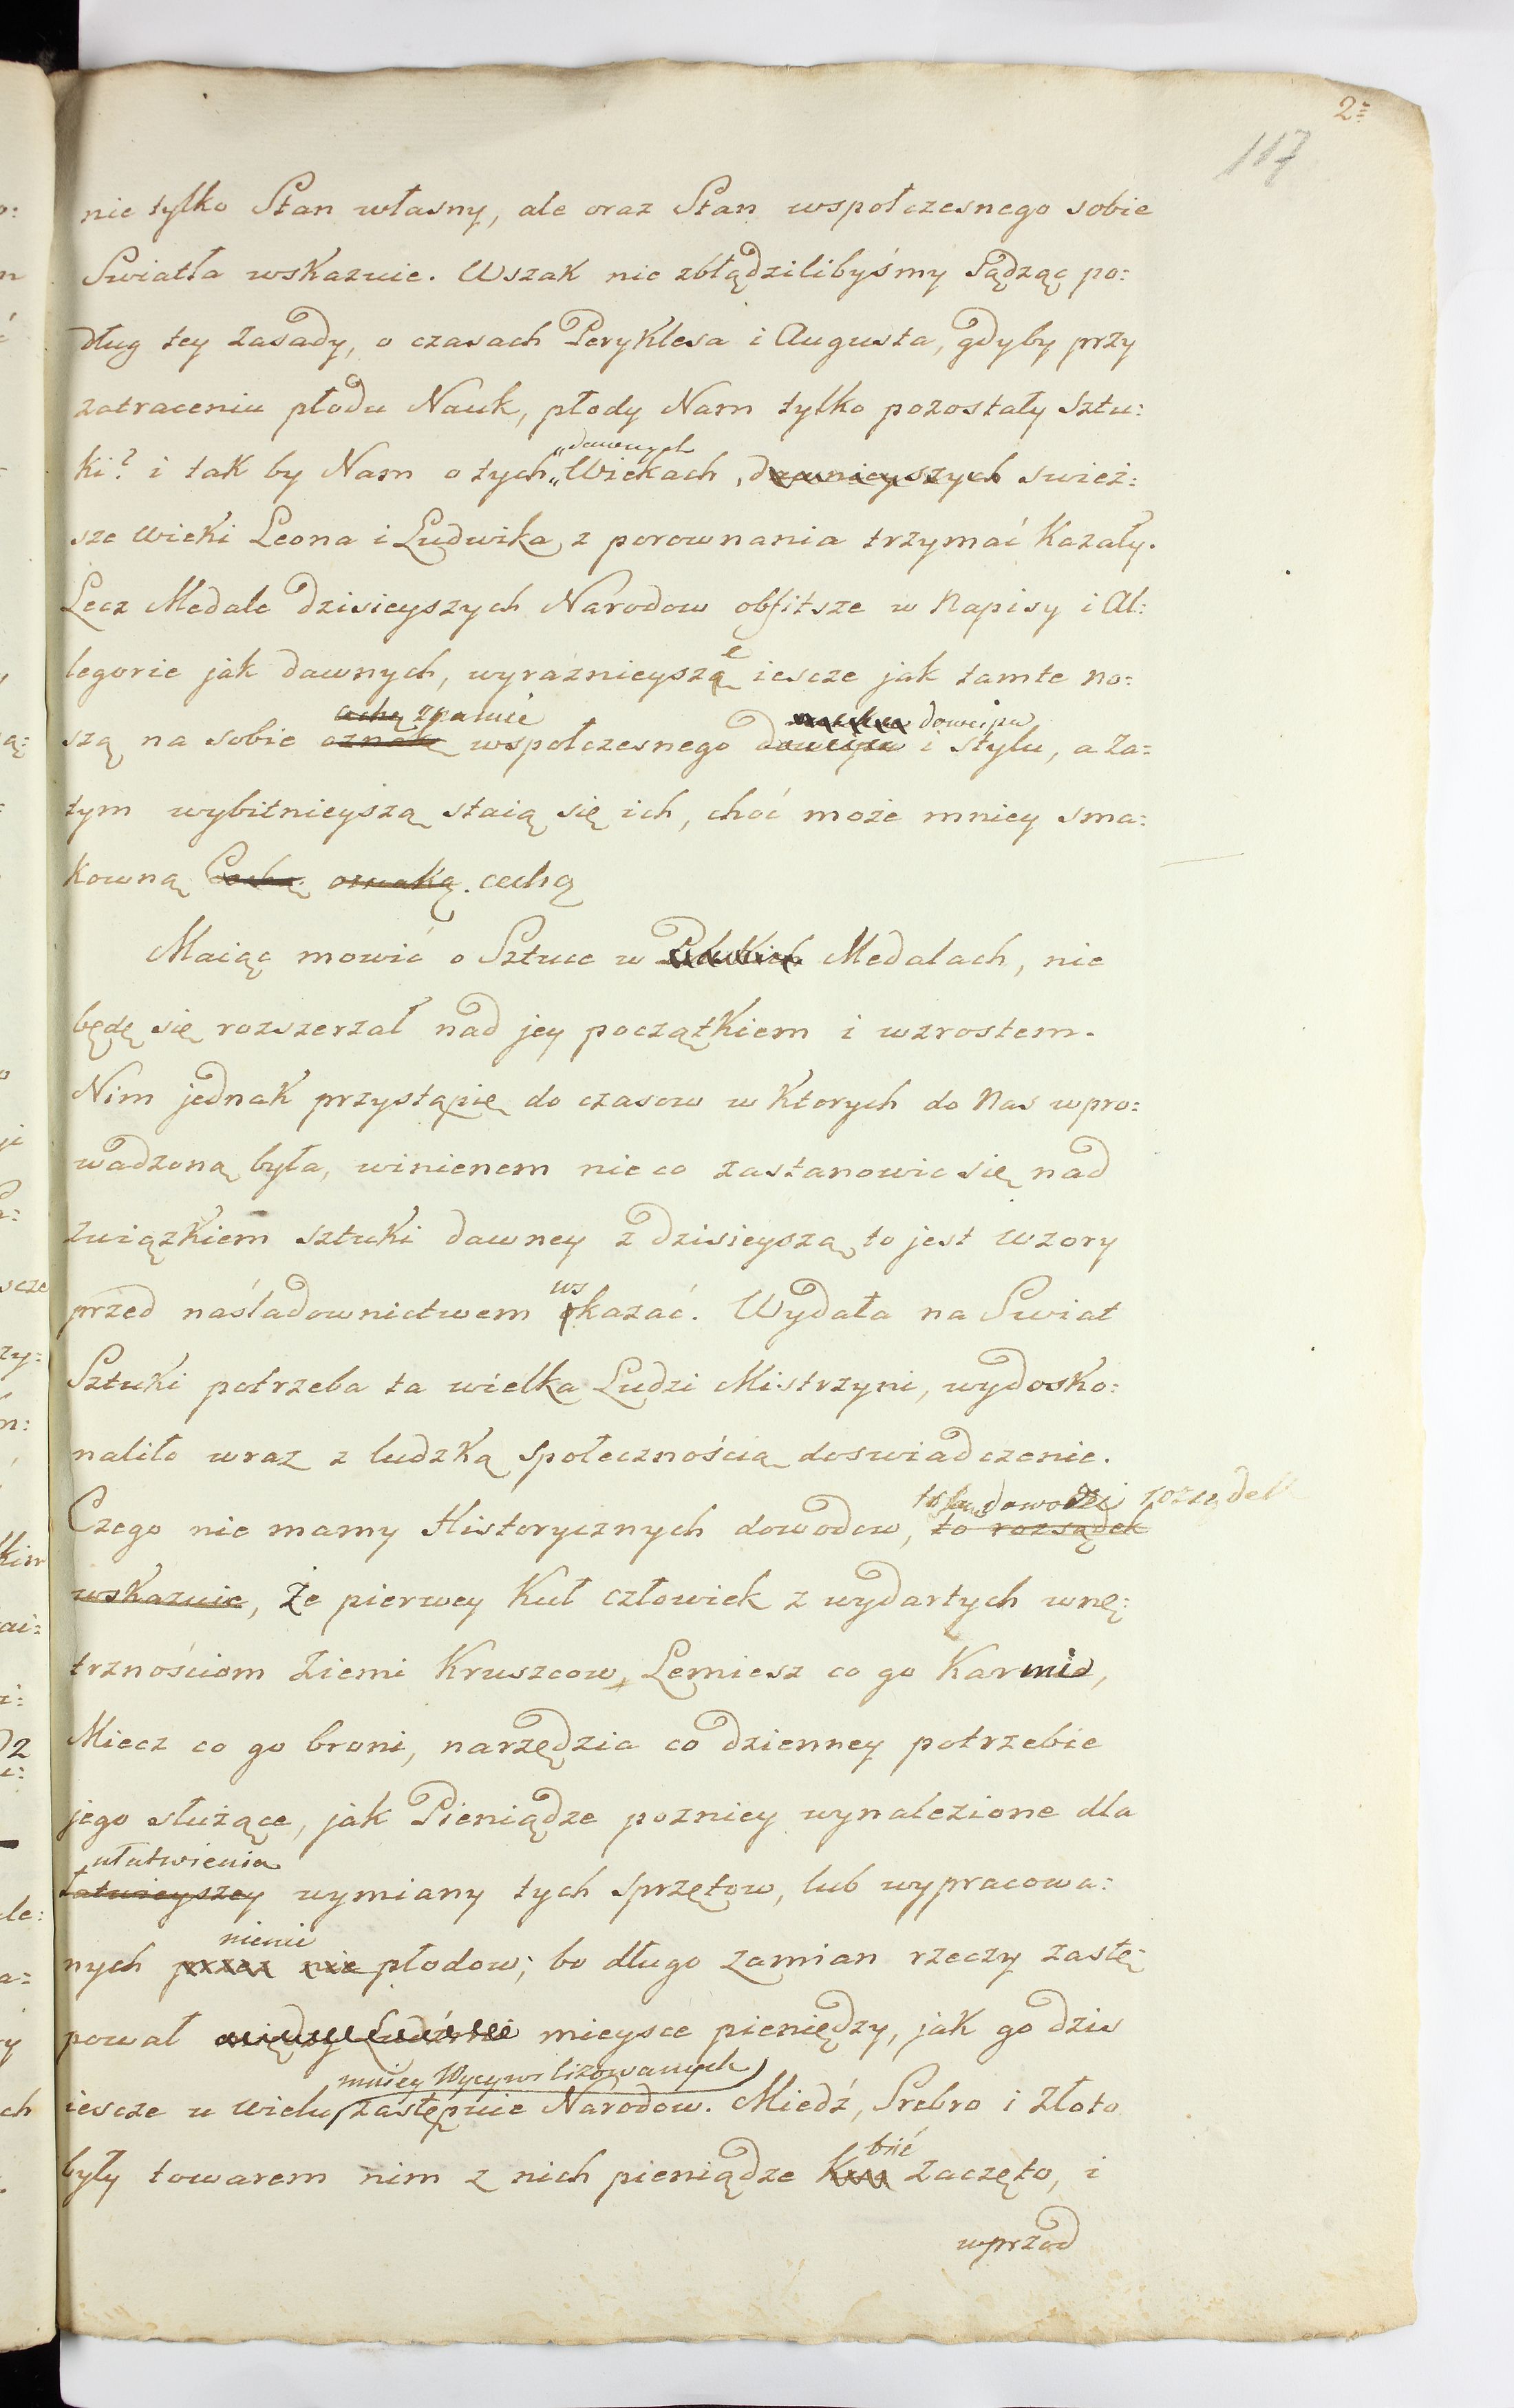 2=
117
nie tylko Stan własny, ale oraz Stan wspołczesnego sobie
Swiatła wskazuie. Wszak nie zbłądzilibyśmy Sądząc po:
dług tey zasady, o czasach Peryklesa i Augusta, gdyby przy
zatraceniu płodu Nauk, płody Nam tylko pozostały Sztu:
dawnych
ki? i tak by Nam o tych „Wiekach, dawnieyszych swież:
sze wieki Leona i Ludwika z porownania trzymać Kazały.
Lecz Medale dzisieyszych Narodow obfitsze w Napisy i Al:
legorie jak dawnych, wyraźnieyszą iescze jak tamte no:
cechę znamie dowcipu
szą na sobie oznakę wspołczesnego dowcipu i stylu, a Za=
tym wybitnieyszą staią się ich, choć może mniey sma:
kowną Cechą oznaką. cechą
Maiąc mowić o Sztuce w Polskich Medalach, nie
będę się rozszerzał nad jey początkiem i wzrostem.
Nim jednak przystąpię do czasow w Ktorych do Nas wpro:
wadzoną była, winienem nieco zastanowic się nad
związkiem sztuki dawney z dzisieyszą to jest wzory
ws
przed naśladownictwem okazać. Wydała na Swiat
Sztuki potrzeba ta wielka Ludzi Mistrzyni, wydosko:
naliło wraz z ludzką społecznością doswiadczenie.
dowodzi rozsądek
Czego nie mamy Historycznych dowodow, to rozsądek
wskazuie, Że pierwey Kuł człowiek z wydartych wnę:
trznościom Ziemi Kruszcow, Lemiesz co go Karmia,
Miecz co go broni, narzędzia co dzienney potrzebie
jego służące, jak Pieniądze pozniey wynalezione dla
ułatwienia
łatwieyszey wymiany tych sprzętow, lub wypracowa:
niemi
nych przez nie płodow; bo długo Zamian rzeczy zastę:
pował między Ludźmi mieysce pieniędzy, jak go dzis
mniey Wycywilizowanych
iescze u wielu zastępuie Narodow. Miedź, Srebro i złoto
bić
były towarem nim z nich pieniądze Kuć Zaczęto, i
wprzod